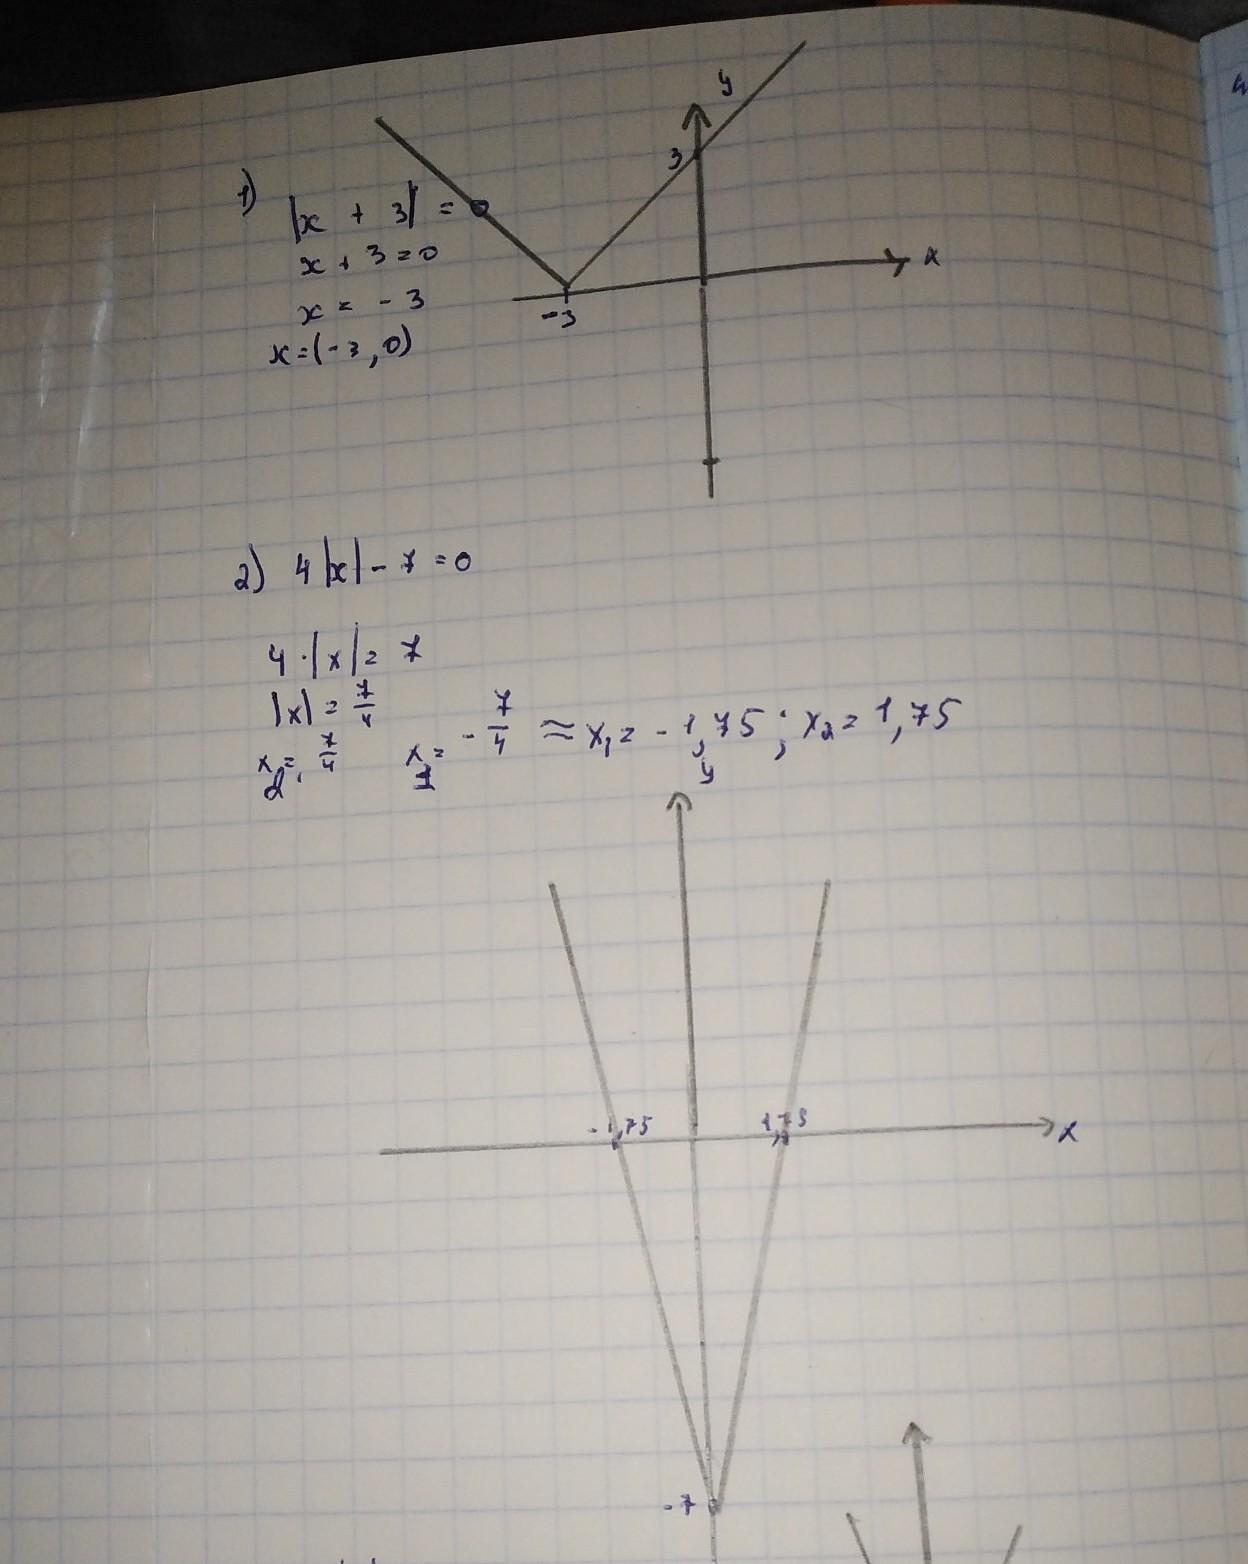 y
3
1) |x + 3| = 0
x + 3 = 0
x
x = - 3
-3
x = (-3, 0)
2) 4|x| - 7 = 0
4 · |x| = 7
|x| = 7/4
x₂ = 7/4 x₁ = - 7/4 ≈ x₁ = - 1,75 ; x₂ = 1,75
y
-1,75 1,75
x
-7